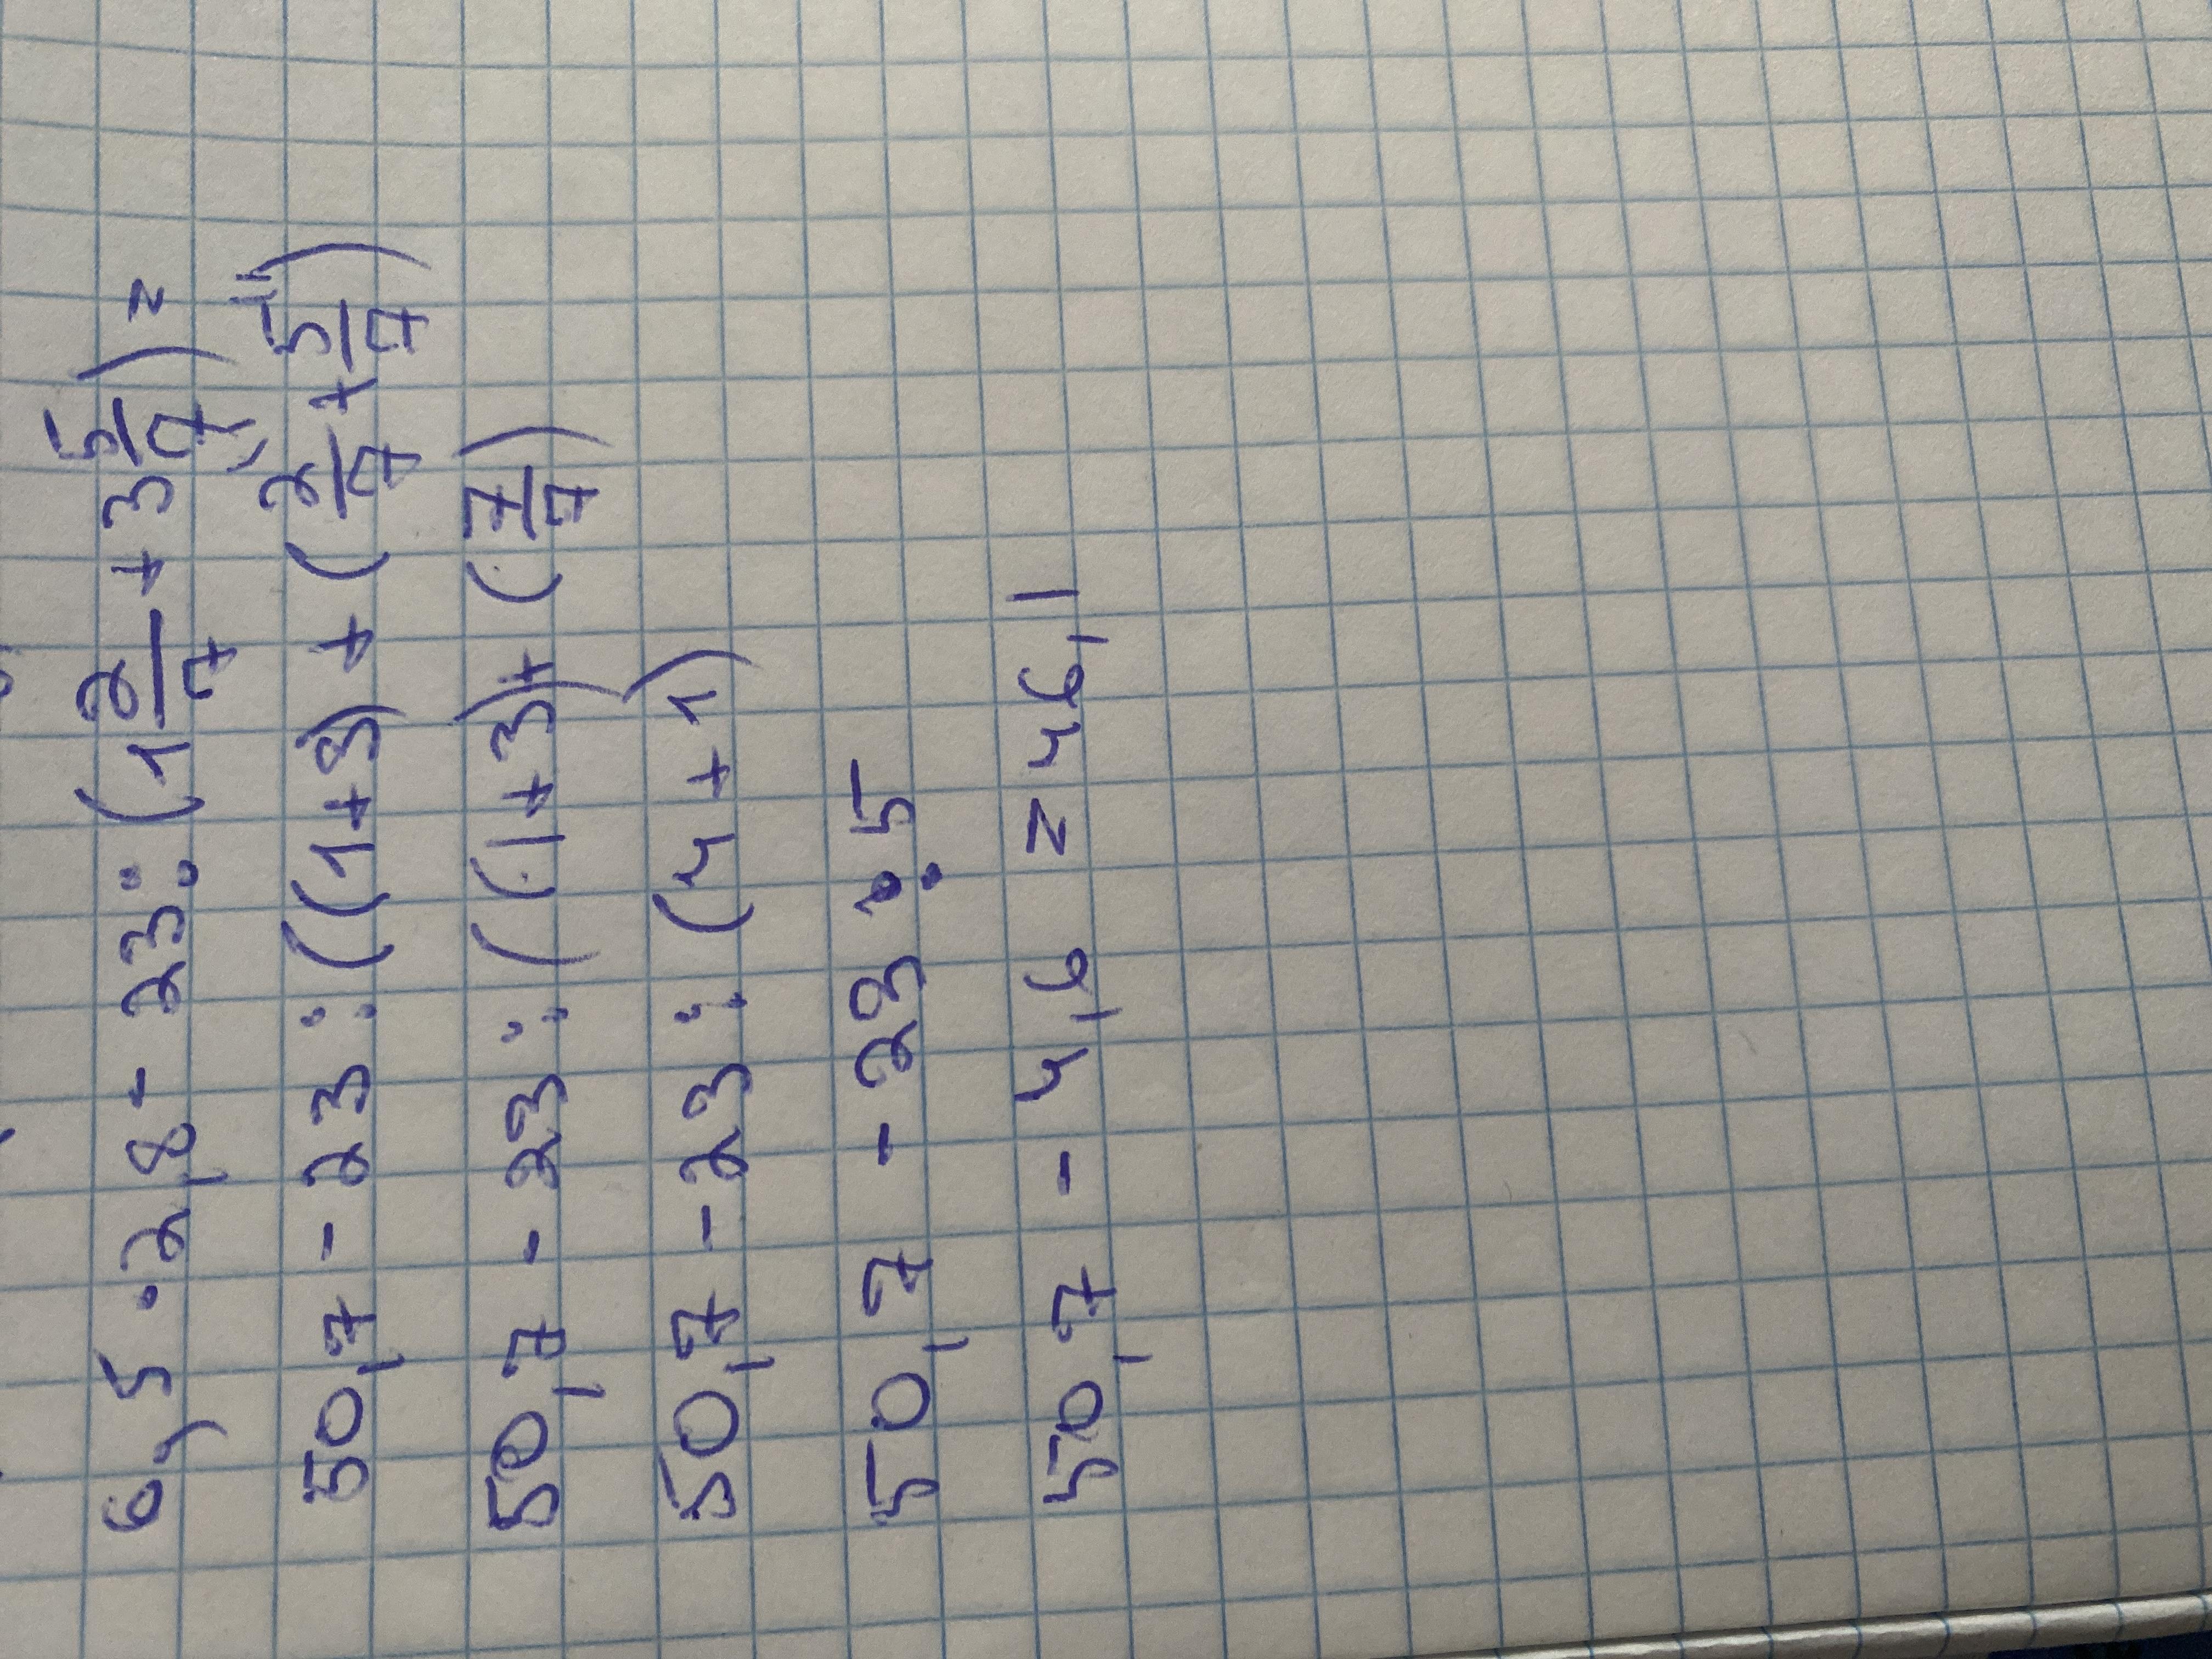 6,5 · 2,8 - 23 : (1 2/7 + 3 5/7) =
50,7 - 23 : ((1+3) + (2/7 + 5/7)
50,7 - 23 : ((1+3) + (7/7)
50,7 - 23 : (4 + 1)
50,7 - 23 : 5
50,7 - 4,6 = 46,1